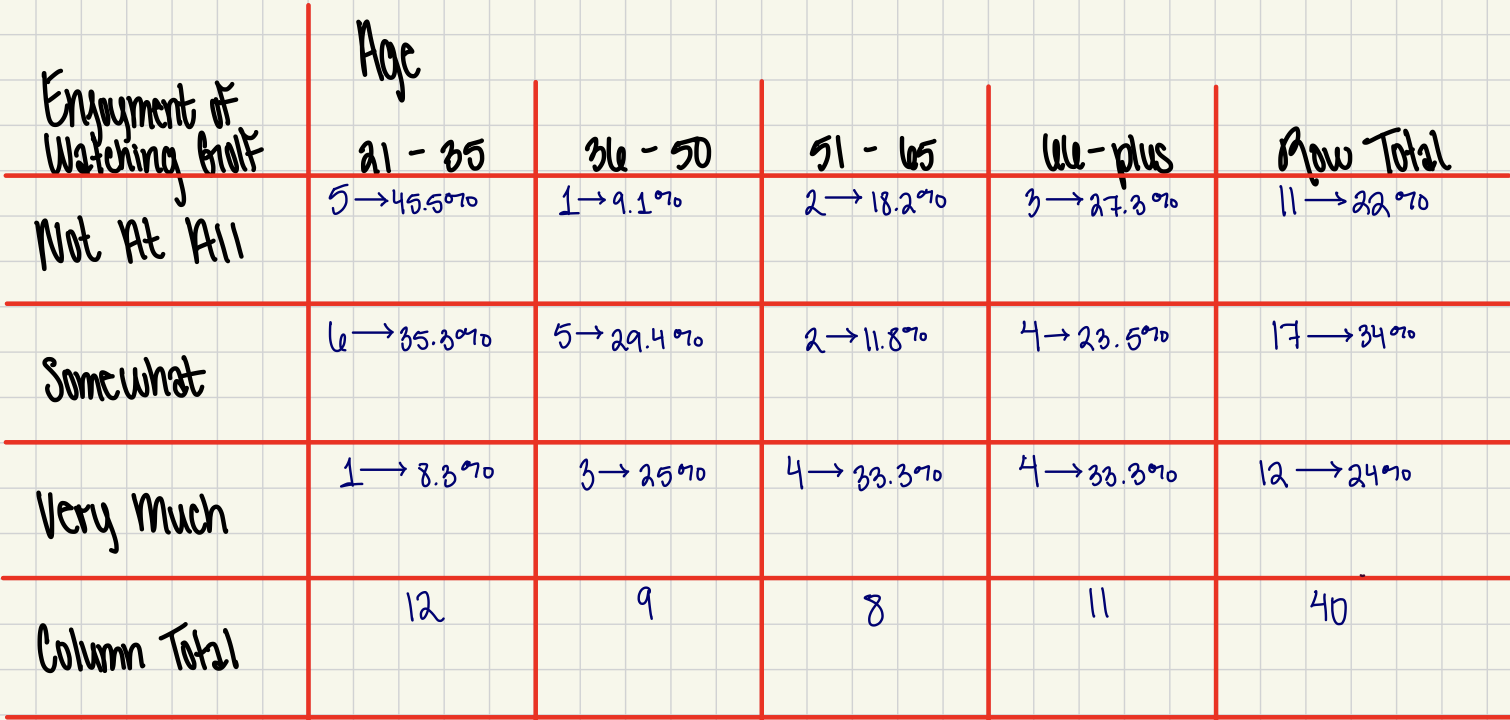 Age
Enjoyment of
Watching Golf 21 - 35 36 - 50 51 - 65 66-plus Row Total
Not At All 5→45.5% 1→9.1% 2→18.2% 3→27.3% 11→22%
Somewhat 6→35.3% 5→29.4% 2→11.8% 4→23.5% 17→34%
Very Much 1→8.3% 3→25% 4→33.3% 4→33.3% 12→24%
Column Total 12 9 8 11 40